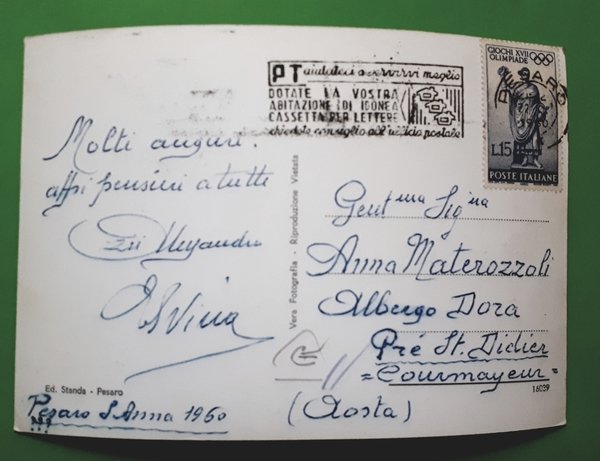 PT aiutateci a servirvi meglio
DOTATE LA VOSTRA
ABITAZIONE DI IDONEA
CASSETTA PER LETTERE
chiedete consiglio all'ufficio postale
GIOCHI XVII
OLIMPIADE
PESARO
L.15
POSTE ITALIANE
Molti auguri.
affi pensieri a tutte
Zii Alessandro
Gent.ma Sig.na
Anna Materozzoli
Albergo Dora
Pré St. Didier
=Courmayeur=
(Aosta)
16039
Vera Fotografia - Riproduzione Vietata
Ed. Standa - Pesaro
Pesaro S. Anna 1960